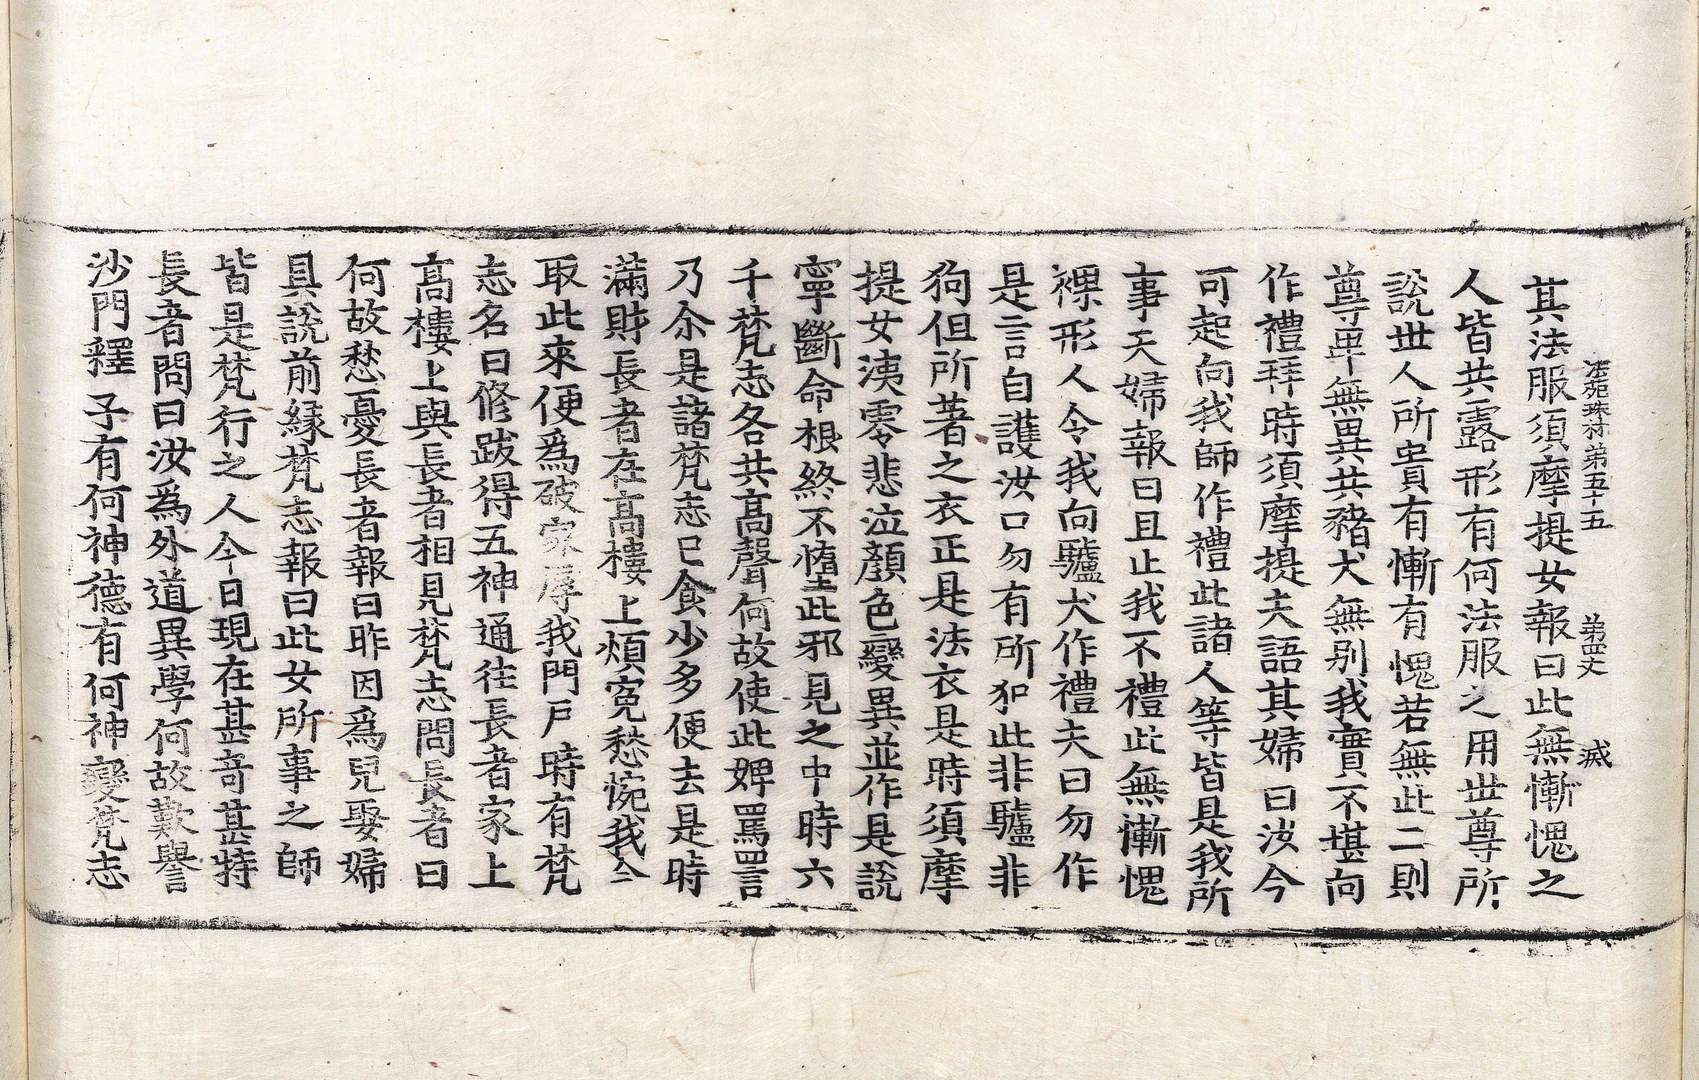 法苑珠林第五十五 第四丈 㓕
其法服須摩提女報曰此無慚愧之
人皆共露形有何法服之用世尊所
說世人所貴有慚有愧若無此二則
尊卑無異共豬犬無別我實不堪向
作禮拜時須摩提夫語其婦曰汝今
可起向我師作禮此諸人等皆是我所
事天婦報曰且止我不禮此無慚愧
裸形人令我向驢犬作禮夫曰勿作
是言自護汝口勿有所犯此非驢非
狗但所著之衣正是法衣是時須摩
提女洟零悲泣顏色變異並作是說
寧斷命根終不墮此邪見之中時六
千梵志各共高聲何故使此婢罵詈
乃尒是諸梵志已食少多便去是時
滿財長者在高樓上煩寃愁惋我今
取此來便爲破家辱我門戶時有梵
志名曰修跋得五神通往長者家上
高樓上與長者相見梵志問長者曰
何故愁憂長者報曰昨因爲兒娶婦
具說前緣梵志報曰此女所事之師
皆是梵行之人今日現在甚奇甚特
長者問曰汝爲外道異學何故歎譽
沙門釋子有何神德有何神變梵志